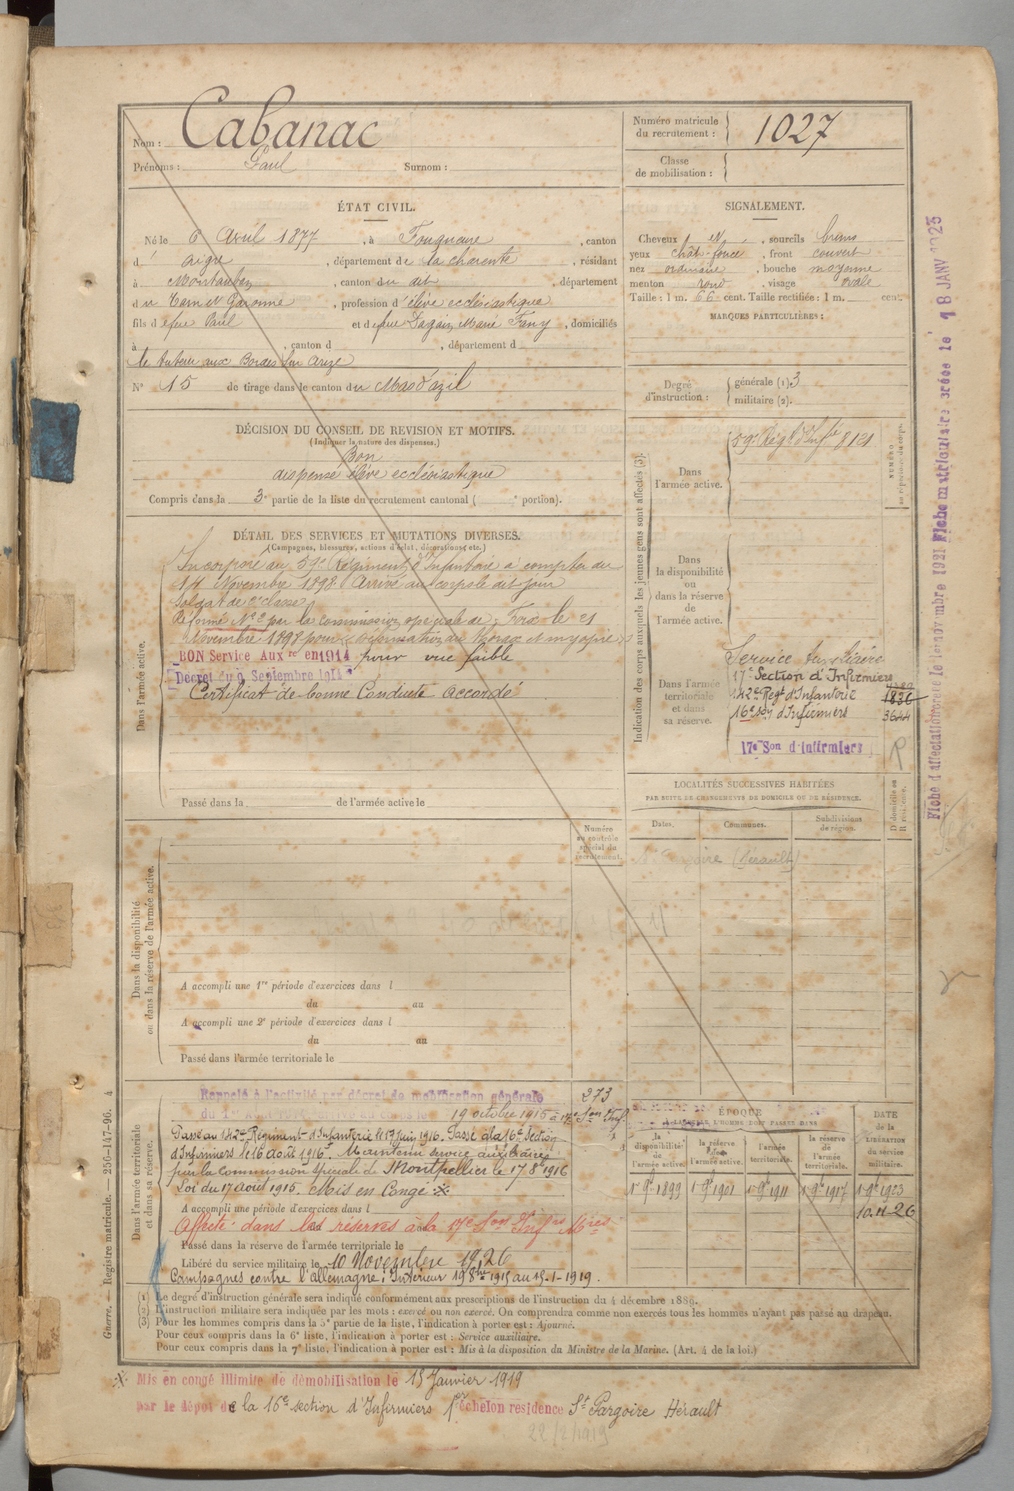 Nom : Cabanac
Prénoms : Paul Surnom :
Numéro matricule du recrutement : 1027
Classe de mobilisation :
ÉTAT CIVIL.
Né le 6 Avril 1877, à Fouqueure, canton
d' Aigre, département de la Charente, résidant
à Montauban, canton du dit, département
du Tarn et Garonne, profession d'élève ecclésiastique
fils de feu Paul et de feue Marie Fany, domiciliés
à , canton d , département d
le tuteur aux Bordes sur Arize
N° 15 de tirage dans le canton du Mas d'azil
SIGNALEMENT.
Cheveux N, sourcils bruns
yeux chât. foncé, front couvert
nez ordinaire, bouche moyenne
menton rond, visage ovale
Taille : 1 m. 66 cent. Taille rectifiée : 1 m. cent.
MARQUES PARTICULIÈRES :
Degré d'instruction : générale (1) 3
militaire (2).
DÉCISION DU CONSEIL DE REVISION ET MOTIFS.
(Indiquer la nature des dispenses.)
Bon
dispensé élève ecclésiastique
Compris dans la 3e partie de la liste du recrutement cantonal ( e portion).
DÉTAIL DES SERVICES ET MUTATIONS DIVERSES.
(Campagnes, blessures, actions d'éclat, décorations, etc.)
Dans l'armée active.
Incorporé au 59e Régiment d'Infanterie à compter du
14 Novembre 1898 Arrivé au corps le dit jour
Soldat de 2e classe
Réformé N° 2 par la commission spéciale de Foix le 21
Novembre 1898 pour déformation du thorax et myopie
BON Service Auxre en 1914 pour vue faible
Décret du 9 Septembre 1914
Certificat de bonne Conduite accordé
Passé dans la de l'armée active le
Indication des corps auxquels les jeunes gens sont affectés (3).
NUMÉRO
Dans l'armée active. 59e Régt d'Infie 8121
Dans la disponibilité ou dans la réserve de l'armée active.
Dans l'armée territoriale et dans sa réserve.
Service Auxiliaire
17e Section d'Infirmiers
142e Regt d'Infanterie 1836
16e Son d'Infirmiers 3644
17e Son d'infirmiers
R
LOCALITÉS SUCCESSIVES HABITÉES
PAR SUITE DE CHANGEMENTS DE DOMICILE OU DE RÉSIDENCE.
Dates. Communes. Subdivisions de région. D domicile ou R résidence.
(Hérault)
Numéro au contrôle spécial du recrutement.
Dans la disponibilité ou dans la réserve de l'armée active.
A accompli une 1re période d'exercices dans l
du au
A accompli une 2e période d'exercices dans l
du au
Passé dans l'armée territoriale le
Dans l'armée territoriale et dans sa réserve.
Rappelé à l'activité par décret de mobilisation générale 273
19 octobre 1915 à 17e Son Inf.
Passé au 142e Régiment d'Infanterie le 1er Juin 1916. Passé à la 16e Section
d'Infirmiers le 16 août 1916. Maintenu service auxiliaire
par la Commission spéciale de Montpellier le 17 8e 1916
Loi du 17 août 1915. Mis en Congé ※
A accompli une période d'exercices dans l
Affecté dans les réserves à la 17e Son Infrs Mres
Passé dans la réserve de l'armée territoriale le
Libéré du service militaire le 10 Novembre 1926
Campagnes contre l'allemagne : Intérieur 19 8bre 1915 au 15-1-1919.
ÉPOQUE
À LAQUELLE L'HOMME DOIT PASSER DANS
la disponibilité de l'armée active. la réserve de l'armée active. l'armée territoriale. la réserve de l'armée territoriale. DATE de la LIBÉRATION du service militaire.
1er 9e 1899 1er 9e 1901 1er 9e 1911 1er 9e 1917 1er 9e 1923
10.11.26
(1) Le degré d'instruction générale sera indiqué conformément aux prescriptions de l'instruction du 4 décembre 1889.
(2) L'instruction militaire sera indiquée par les mots : exercé ou non exercé. On comprendra comme non exercés tous les hommes n'ayant pas passé au drapeau.
(3) Pour les hommes compris dans la 5e partie de la liste, l'indication à porter est : Ajourné.
Pour ceux compris dans la 6e liste, l'indication à porter est : Service auxiliaire.
Pour ceux compris dans la 7e liste, l'indication à porter est : Mis à la disposition du Ministre de la Marine. (Art. 4 de la loi.)
※ Mis en congé illimité de démobilisation le 15 Janvier 1919
par le dépôt de la 16e section d'Infirmiers 1er échelon résidence St Pargoire Hérault
22/2/1919
Guerre. — Registre matricule. — 256-147-96. 4
Fiche d'affectation le 1er novembre 1921 Fiche matriculaire créée le 18 JANV 1923